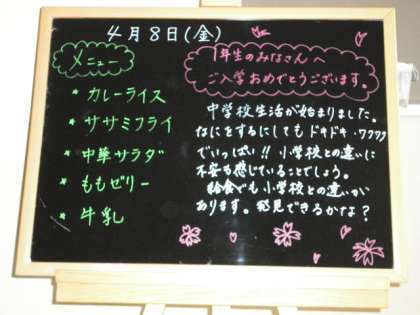 4月8日(金)
メニュー
* カレーライス
* ササミフライ
* 中華サラダ
* ももゼリー
* 牛乳
1年生のみなさんへ
ご入学おめでとうございます。
中学校生活が始まりました。
なにをするにしてもドキドキ・ワクワク
でいっぱい!! 小学校との違いに
不安も感じていることでしょう。
給食でも小学校との違いが
あります。発見できるかな?